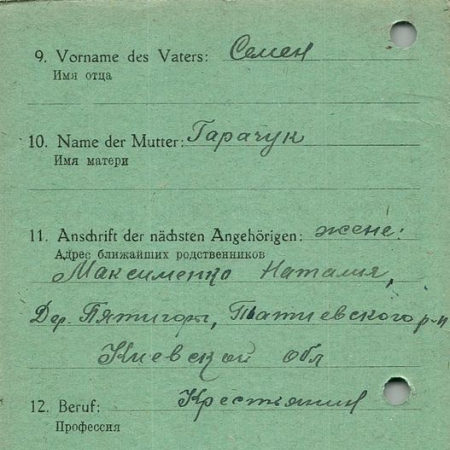 9. Vorname des Vaters: Семен
Имя отца
10. Name der Mutter: Гарачук
Имя матери
11. Anschrift der nächsten Angehörigen: жене:
Адрес ближайших родственников
Максименко Наталия,
Дер. Пятигоры, Татиевского р-н
Киевской обл
12. Beruf: Крестьянин
Профессия